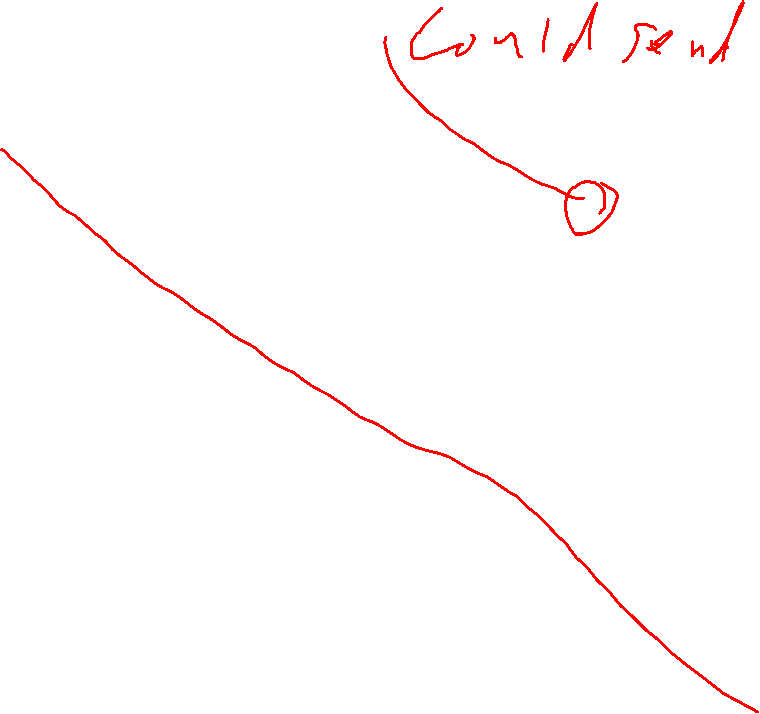 Could send